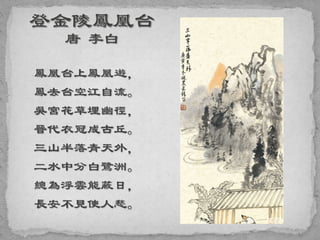 登金陵鳳凰台
唐 李白
鳳凰台上鳳凰遊，
鳳去台空江自流。
吳宮花草埋幽徑，
晉代衣冠成古丘。
三山半落青天外，
二水中分白鷺洲。
總為浮雲能蔽日，
長安不見使人愁。
三山半落青天外